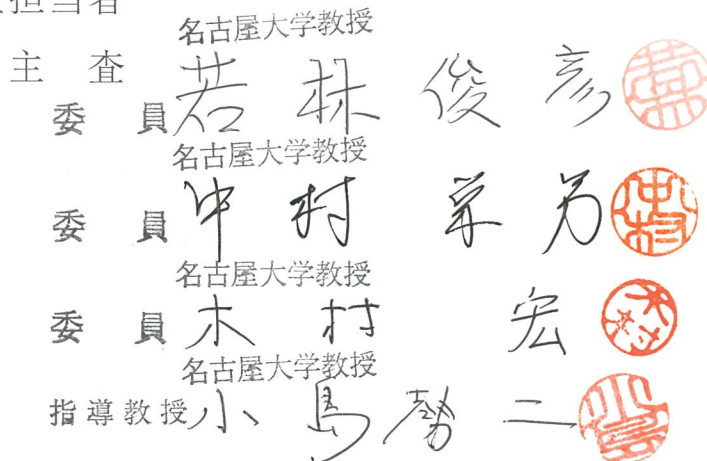 担当者
名古屋大学教授
主査 若林俊彦
委員
名古屋大学教授
委員 中村栄男
名古屋大学教授
委員 木村宏
名古屋大学教授
指導教授 小島勢二